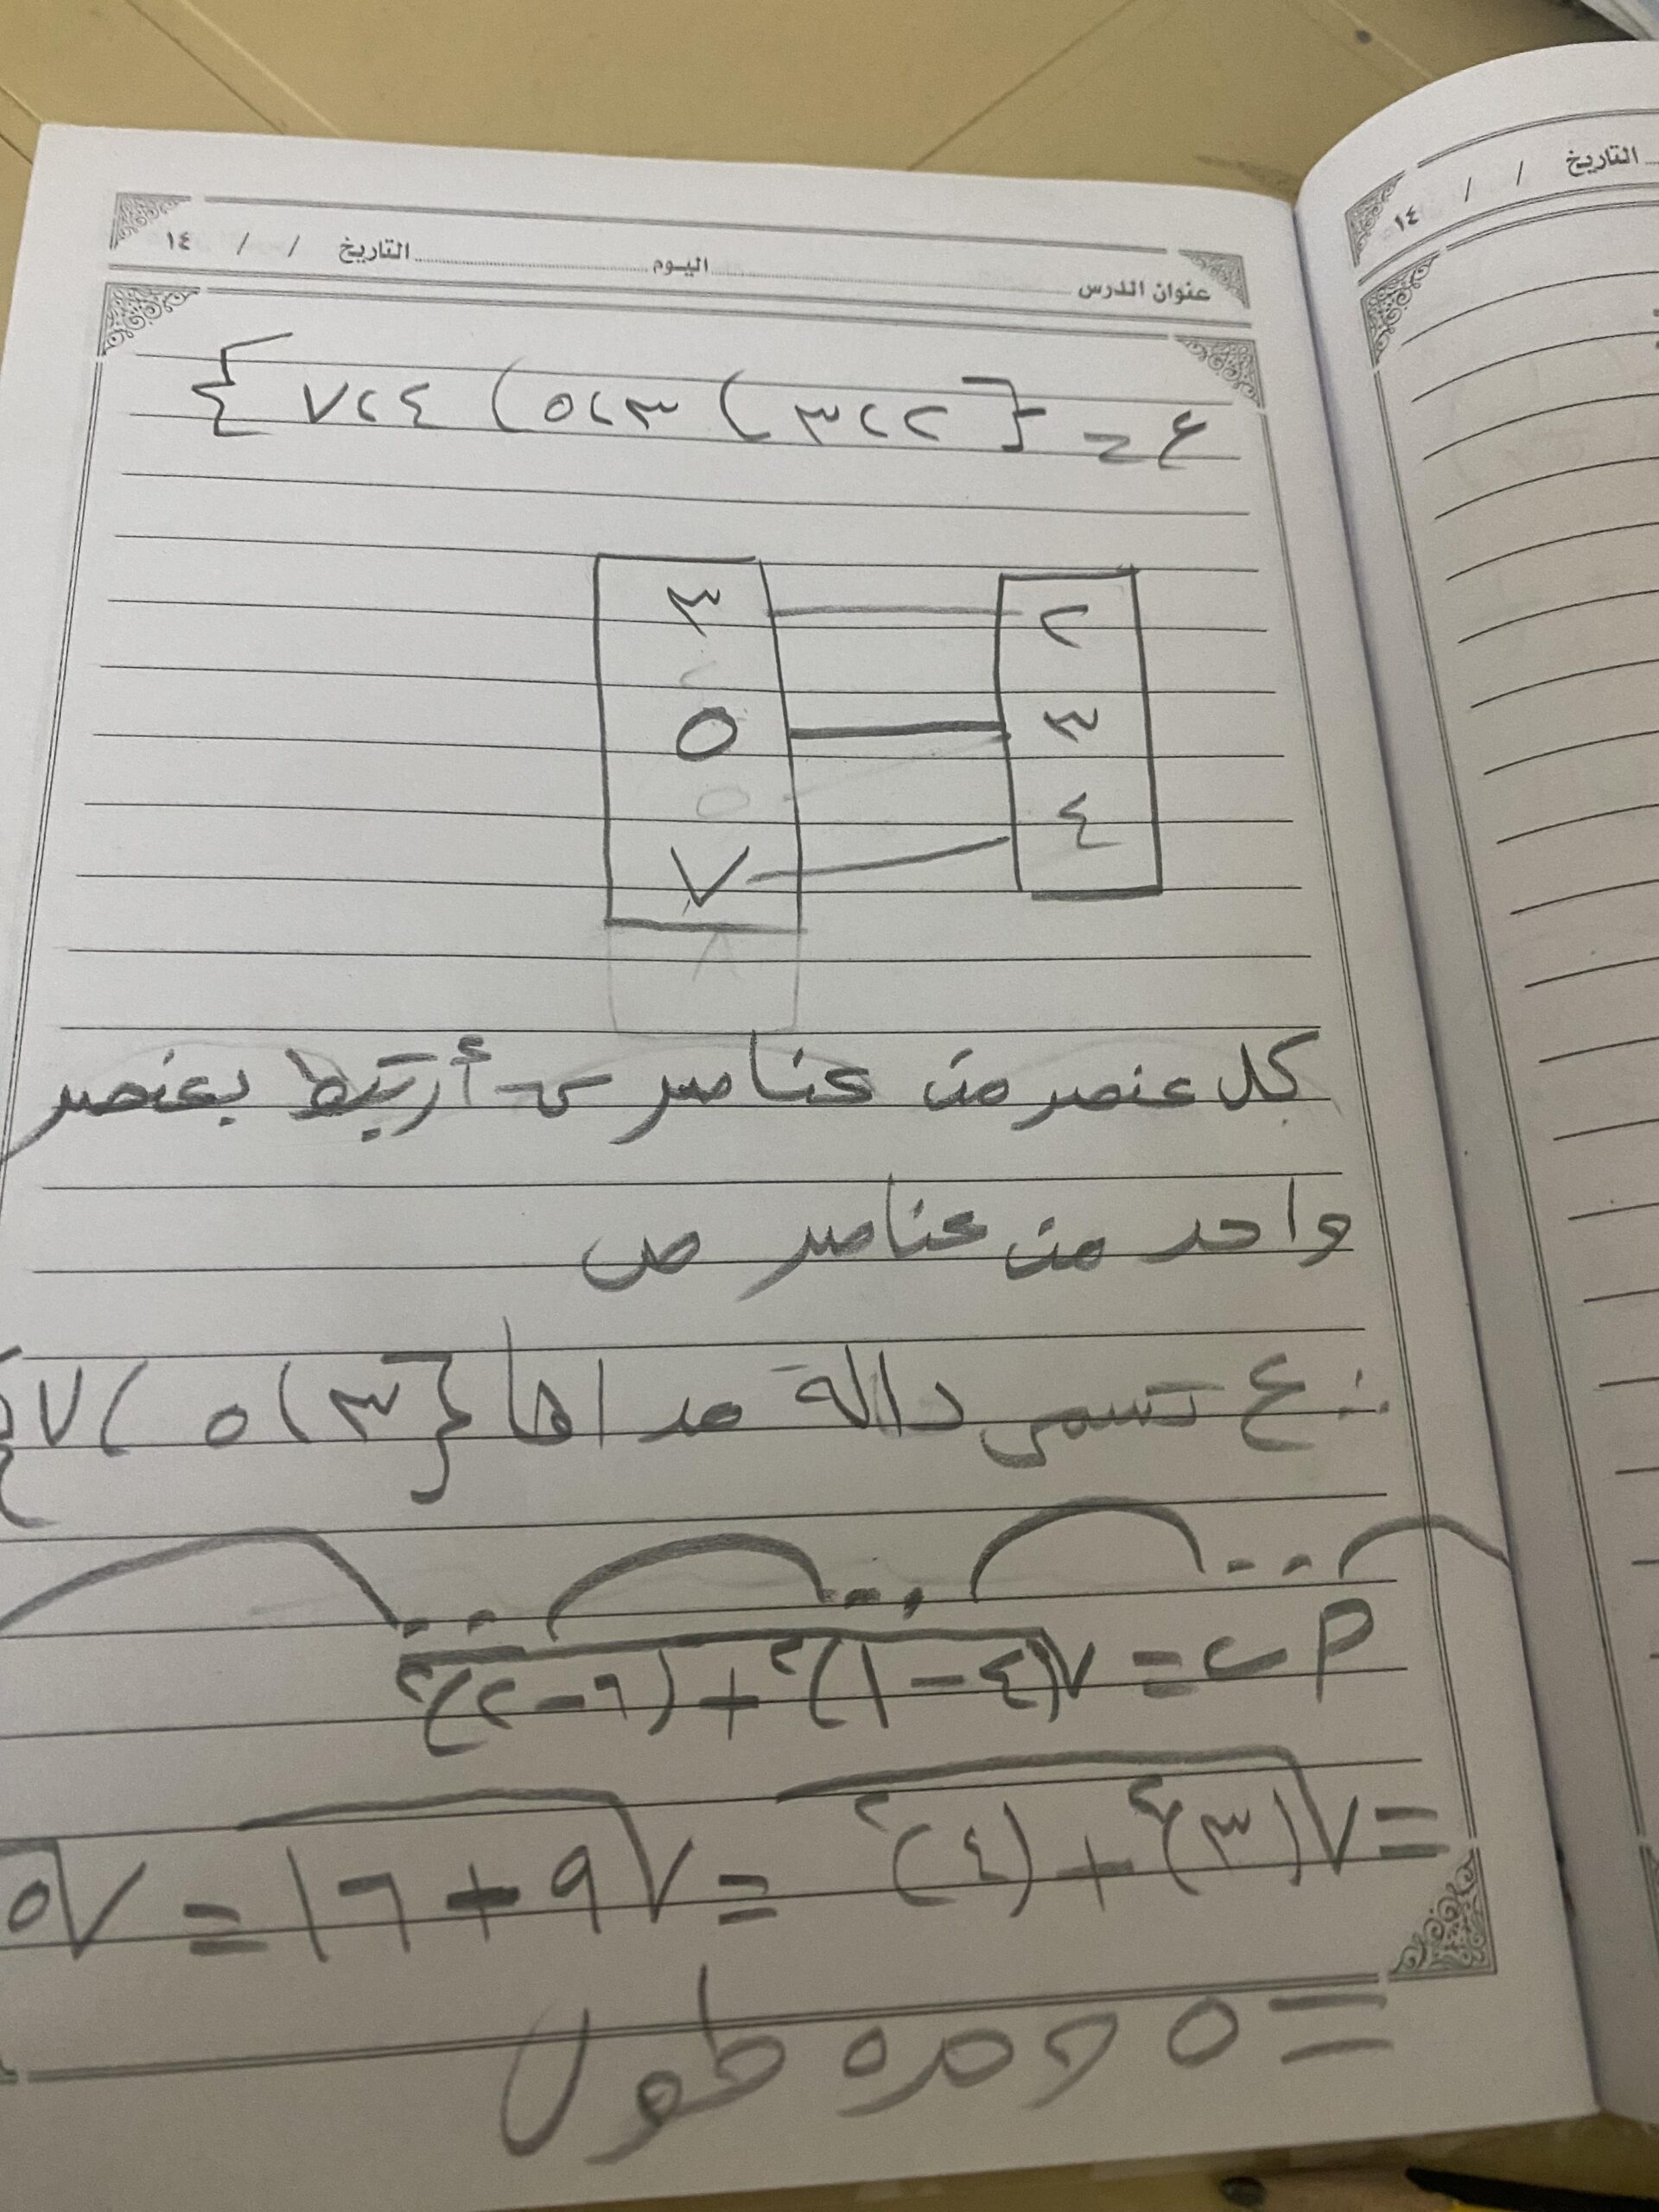 عنوان الدرس اليوم التاريخ / / ١٤
ع = { ٢،٣ ) ٣،٥ ) ٤،٧ }
٢ ٣
٣ ٥
٤ ٧
كل عنصر من عناصر س أرتبط بعنصر
واحد من عناصر ص
∴ ع تسمى دالة مداها {٣،٥،٧}
أ ب = √(٤-١)² + (٦-٢)²
= √(٣)² + (٤)² = √٩ + ١٦ = √
= ٥ وحده طول
التاريخ / / ١٤